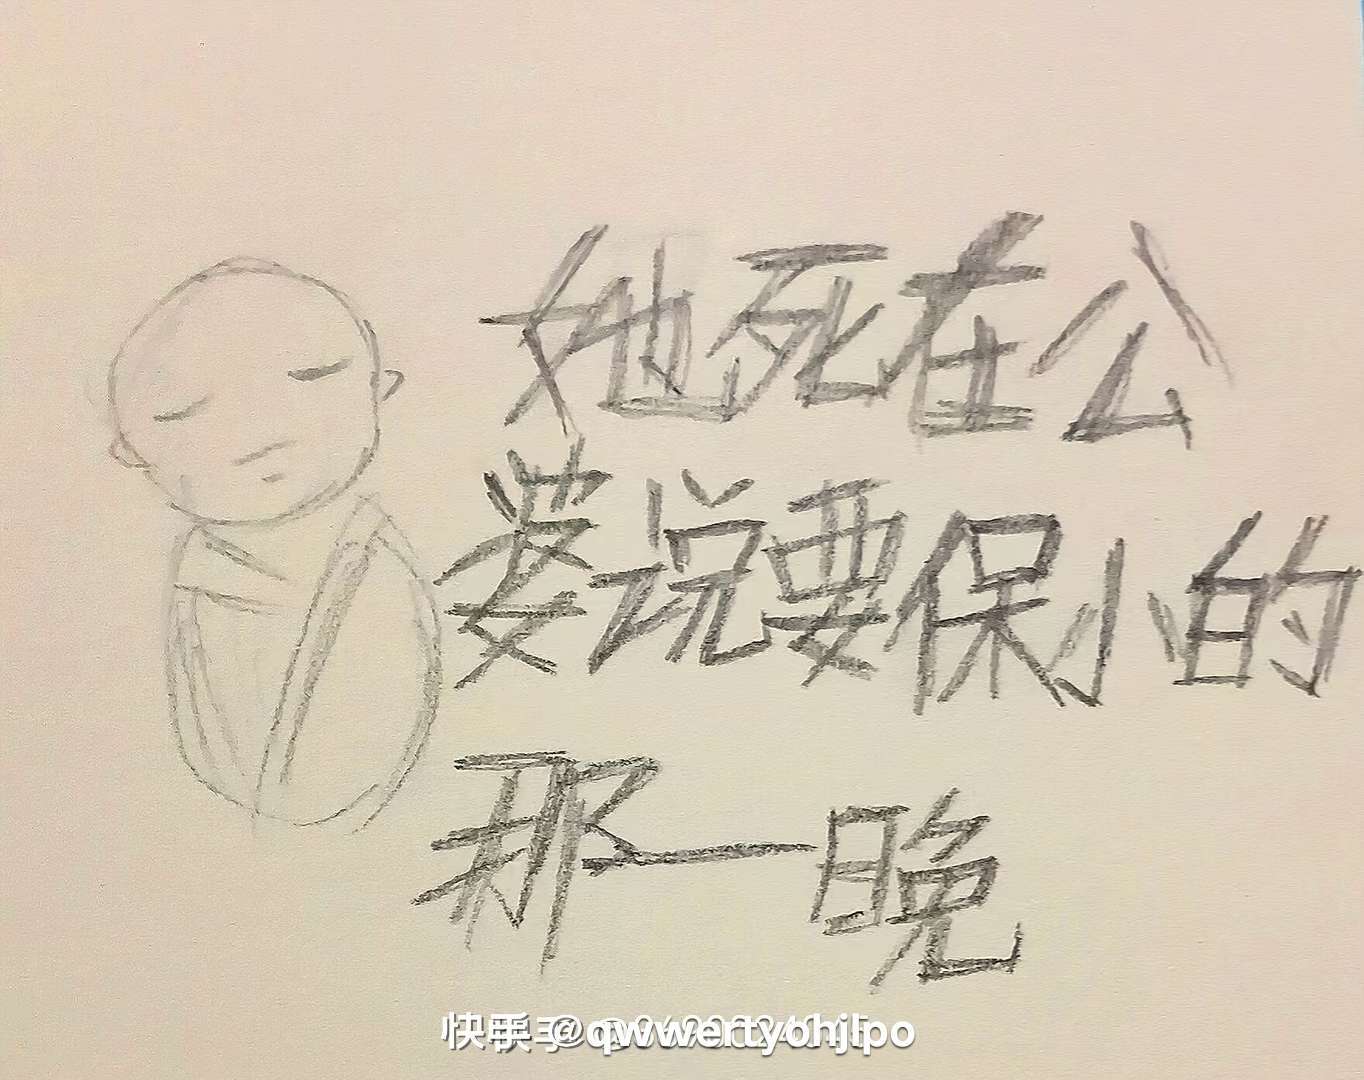 她死在公
婆说要保小的
那一晚
快手